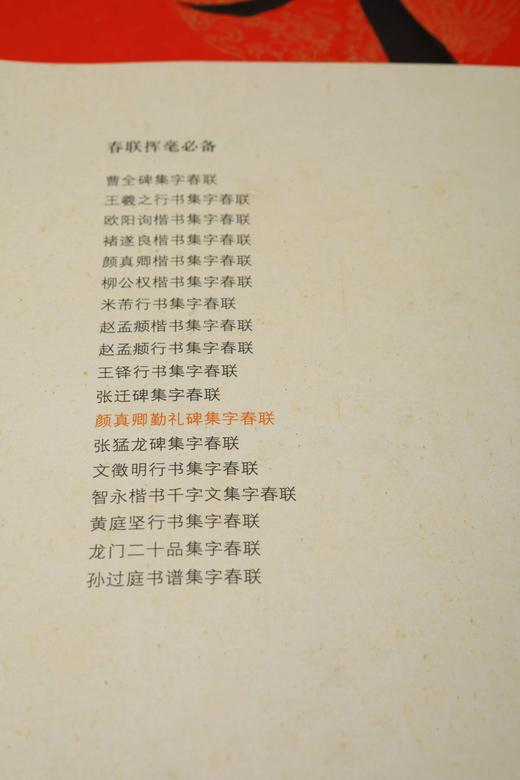 春联挥毫必备
曹全碑集字春联
王羲之行书集字春联
欧阳询楷书集字春联
褚遂良楷书集字春联
颜真卿楷书集字春联
柳公权楷书集字春联
米芾行书集字春联
赵孟頫楷书集字春联
赵孟頫行书集字春联
王铎行书集字春联
张迁碑集字春联
颜真卿勤礼碑集字春联
张猛龙碑集字春联
文徵明行书集字春联
智永楷书千字文集字春联
黄庭坚行书集字春联
龙门二十品集字春联
孙过庭书谱集字春联